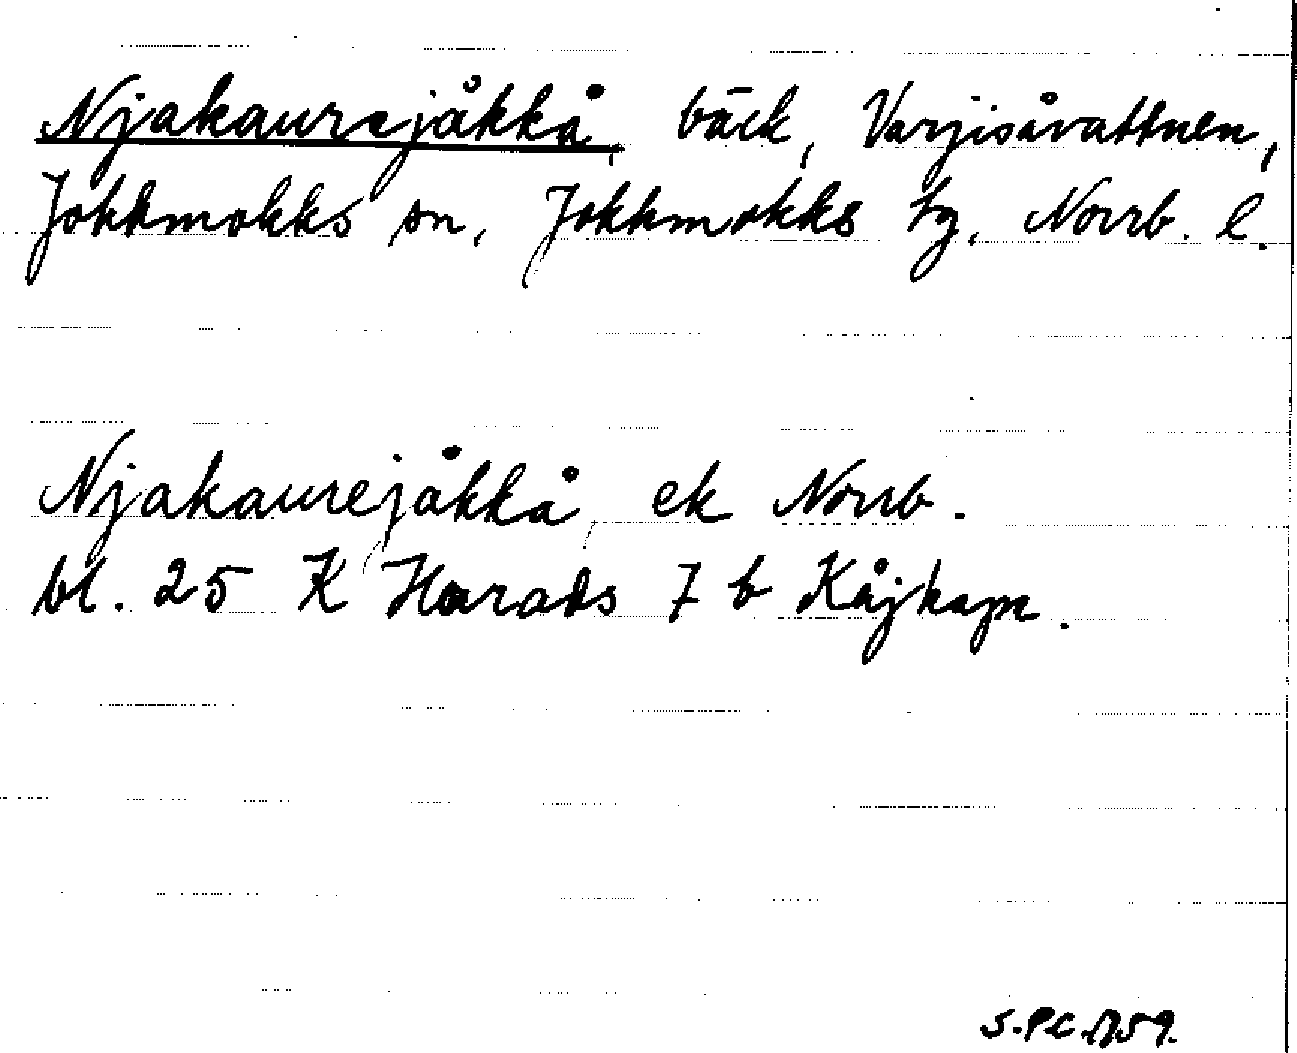 Njakaurejåkkå, bäck, Varjisåvattnen,
Jokkmokks sn, Jokkmokks tg, Norrb. l.
Njakaurejåkkå, ek Norrb.
bl. 25 K Harads 7 b Kåjkapn.